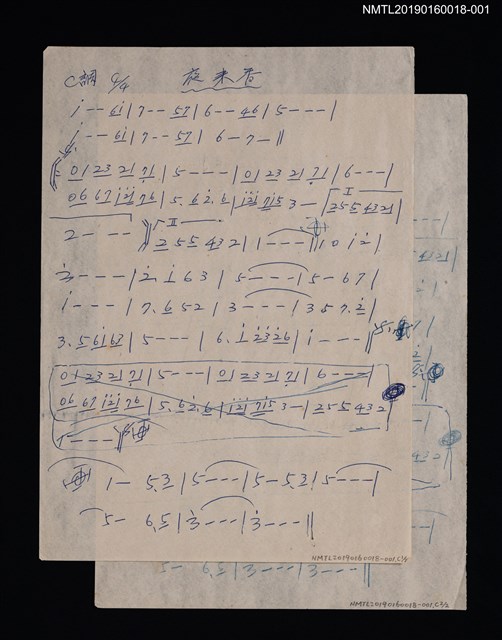 NMTL20190160018-001
C調 4/4 夜來香
i - - 6i | 7 - - 57 | 6 - - 46 | 5 - - - |
i - - 6i | 7 - - 57 | 6 - 7 - ||
01 23 21 71 | 5 - - - | 01 23 21 71 | 6 - - - |
06 67 i2i 76 | 5. 6 2. 6 | i2i 715 3 - | I 255 432 |
2 - - - || II 255 432 | 1 - - - || 1 0 i 2 |
3 - - - | 2. i 6 3 | 5 - - - | 5 - 6 7 |
i - - - | 7. 6 5 2 | 3 - - - | 3 5 7. 2 |
3. 5 6i 63 | 5 - - - | 6. i 23 26 | i - - - ||
01 23 21 71 | 5 - - - | 01 23 21 71 | 6 - - - |
06 67 i2i 76 | 5. 6 2. 6 | i2i 715 3 - | 255 432
1 - - - ||
1 - 5.3 | 5 - - - | 5 - 5.3 | 5 - - - |
5 - 6.5 | 3 - - - | 3 - - - ||
NMTL20190160018-001.C1/2
5 - 6.5 | 3 - - - | 3 - - - ||
NMTL20190160018-001.C2/2